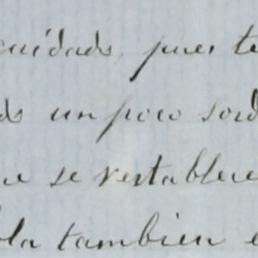 cuidado, pues te
un poco sord
se restablece
tambien e